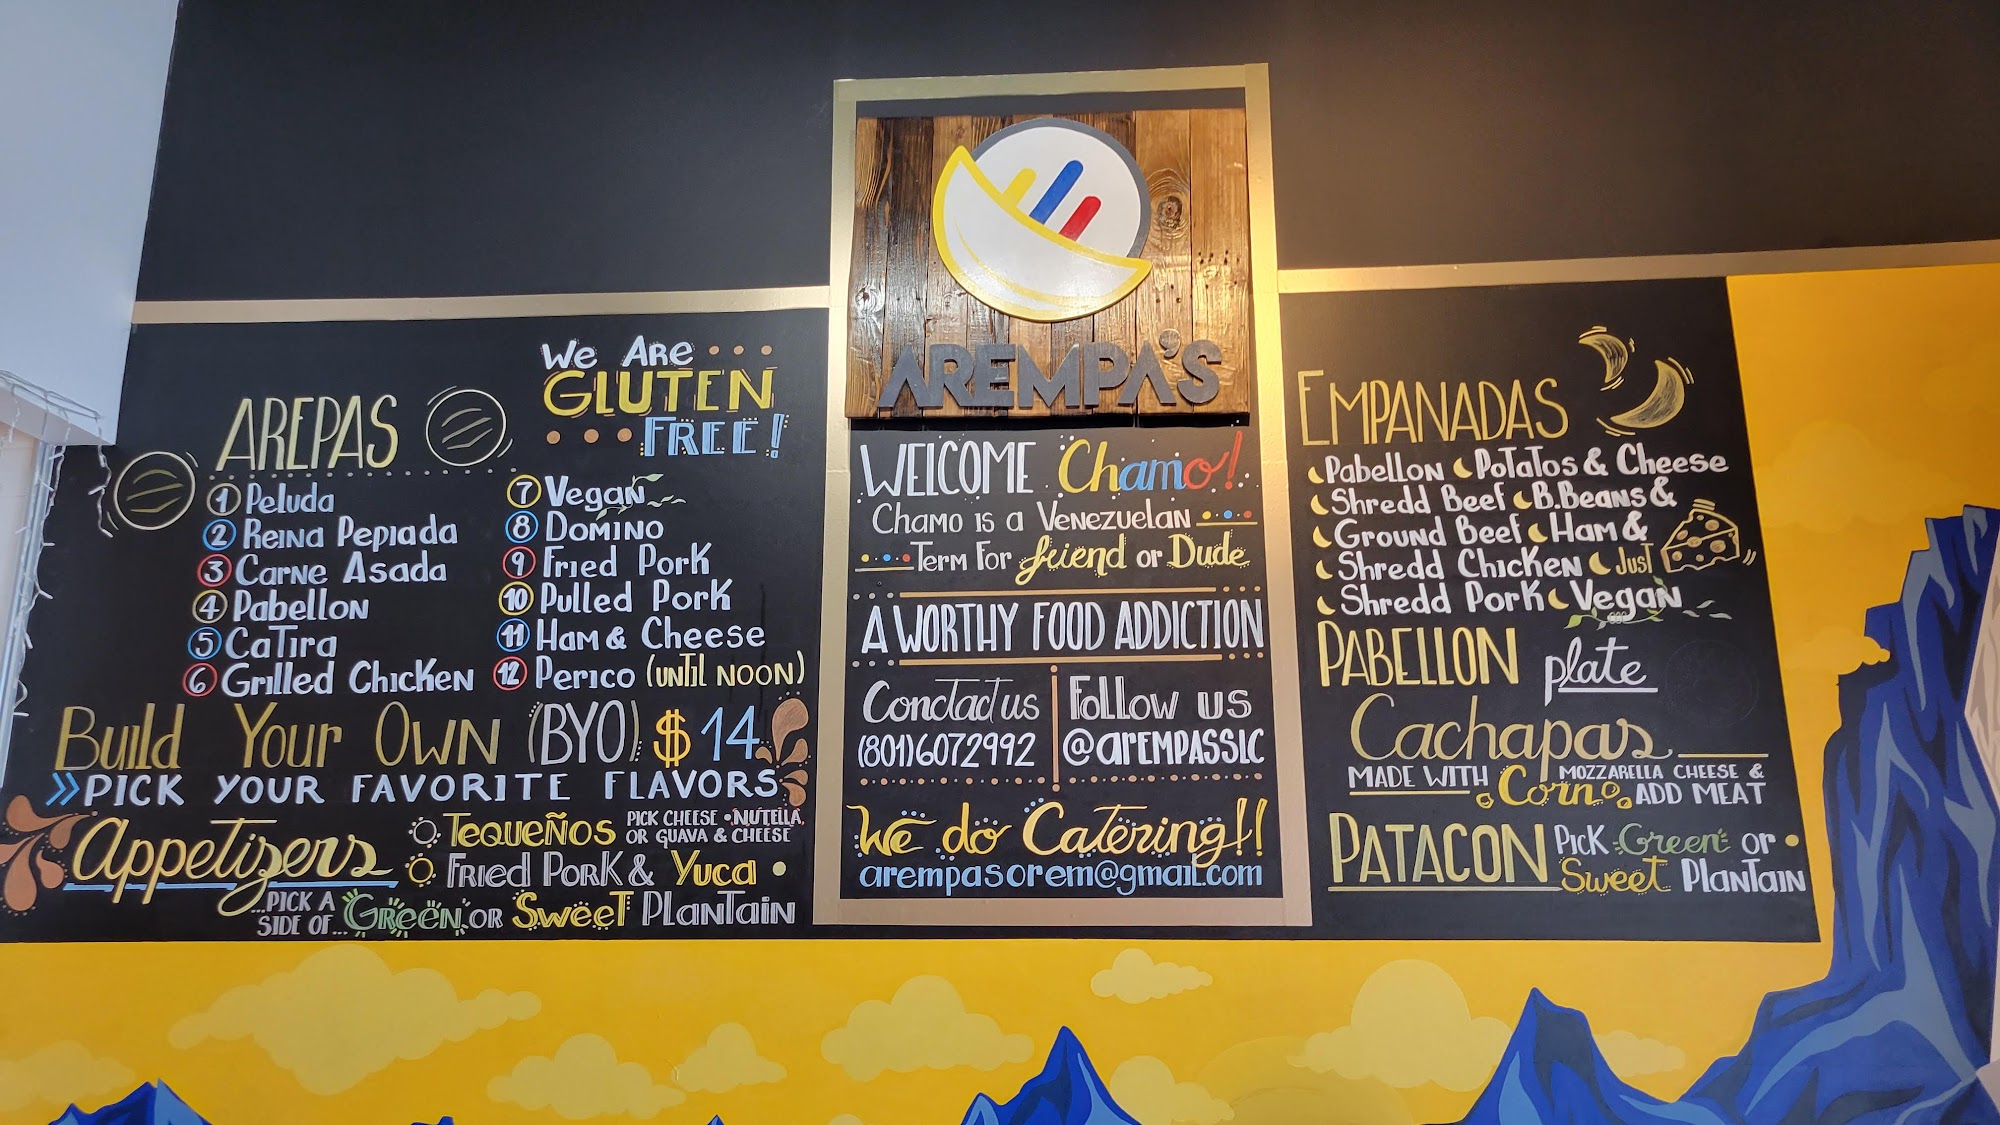 We Are
GLUTEN
FREE!
AREPAS
1 Peluda
2 Reina Pepiada
3 Carne Asada
4 Pabellon
5 Catira
6 Grilled Chicken
7 Vegan
8 Domino
9 Fried Pork
10 Pulled Pork
11 Ham & Cheese
12 Perico (until noon)
Build Your Own (BYO) $14
» PICK YOUR FAVORITE FLAVORS
Appetizers
Tequeños PICK CHEESE • NUTELLA,
OR GUAVA & CHEESE
Fried Pork & Yuca
...PICK A
SIDE OF... Green or Sweet Plantain
AREMPA'S
WELCOME Chamo!
Chamo is a Venezuelan
Term For friend or Dude
A WORTHY FOOD ADDICTION
Conctact us
(801)6072992
Follow us
@arempasslc
We do Catering!!
arempasorem@gmail.com
EMPANADAS
Pabellon Potatos & Cheese
Shredd Beef B.Beans &
Ground Beef Ham &
Shredd Chicken Just
Shredd Pork Vegan
PABELLON plate
Cachapas
MADE WITH Corn MOZZARELLA CHEESE &
ADD MEAT
PATACON Pick Green or
Sweet Plantain